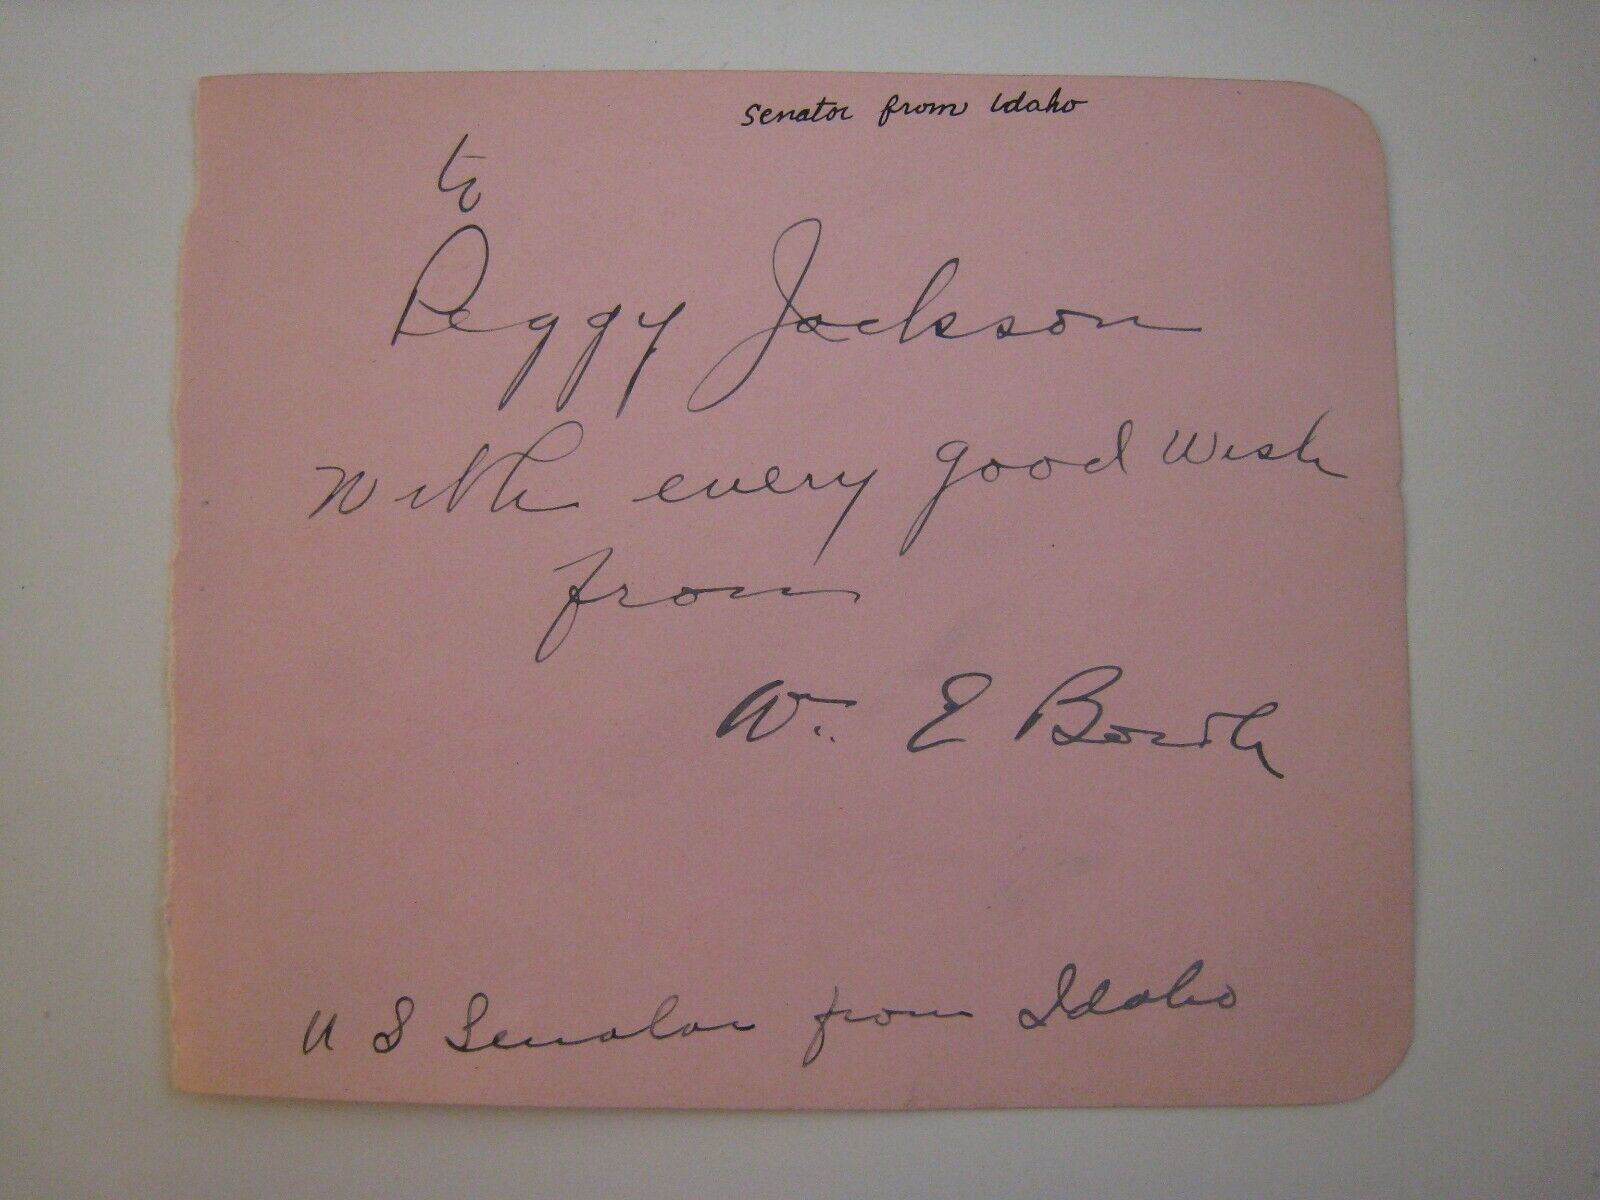 Senator from Idaho
to
Peggy Jackson
With every good Wish
from
Wm. E Borah
U S Senator from Idaho